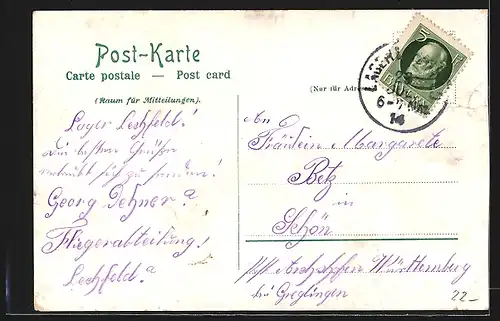 Post-Karte
Carte postale — Post card
(Raum für Mitteilungen).
(Nur für Adresse
LAGER
6-7 NM
14
Lager Lechfeld!
Die besten Grüße
erlaubt sich zu senden!
Georg Dehner
Fliegerabteilung!
Lechfeld.
An
Fräulein Margarete
Betz
in
Schön
Württemberg
bei Creglingen
22-